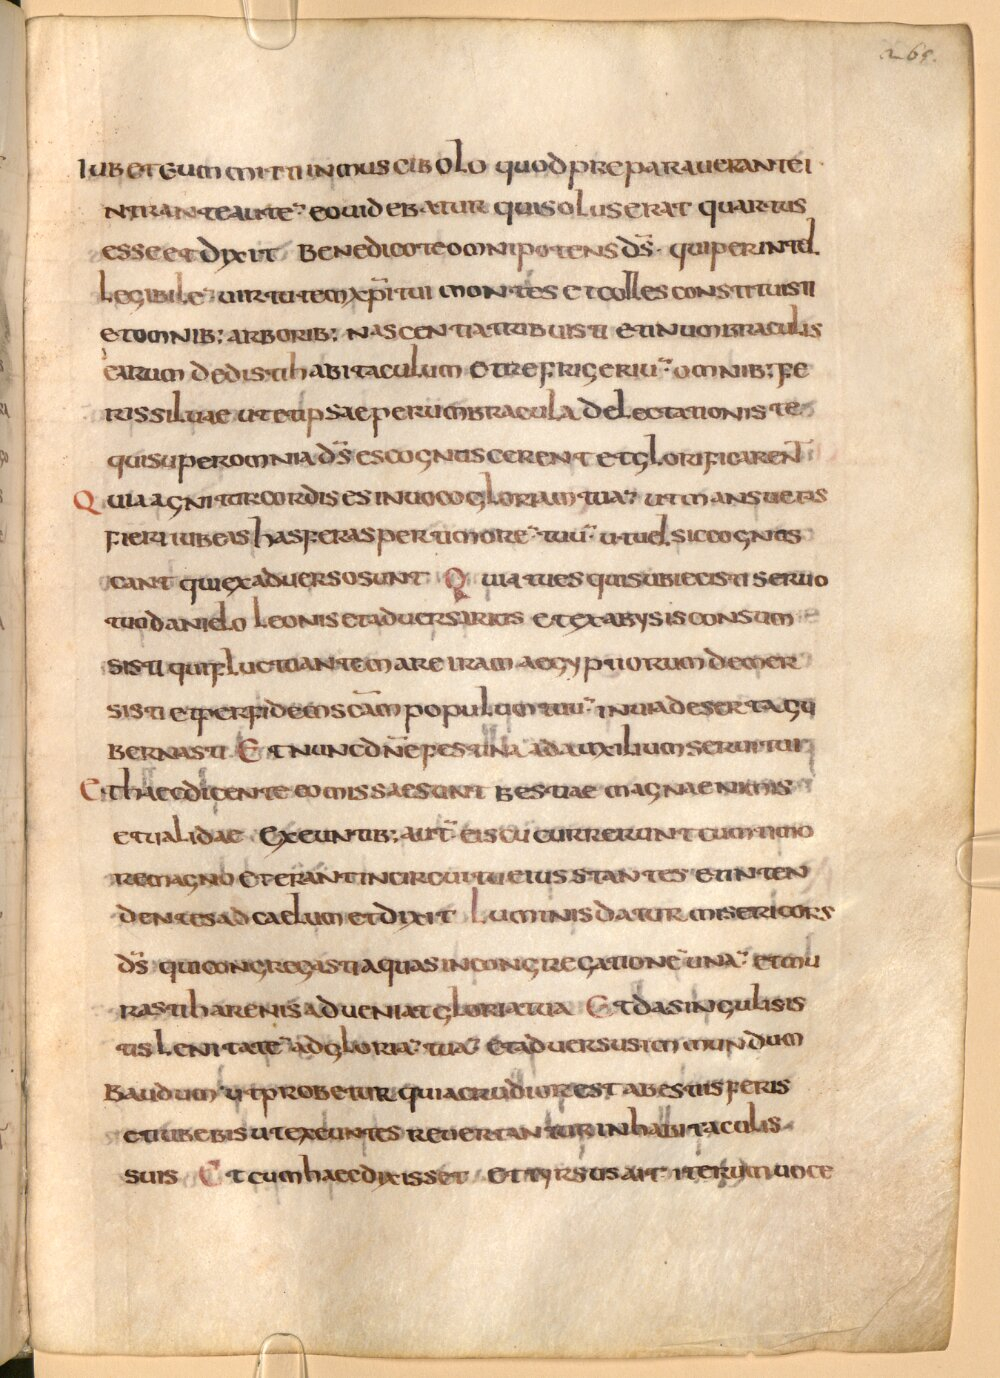 265.
Iubet eum mitti in muscibolo quod preparauerant ei
ntrante aute͞ eo uidebatur qui solus erat quartus
esse et dyxit Benedico te omnipotens d͞s qui per intel
legibile͞ uirtutem xp͞i tui montes et colles constituisti
et omnib: arborib: nascentia tribuisti et in umbraculis
earum dedisti habitaculum et refrigeriu͞ omnib: fe
ris siluae ut et ipsae per umbracula delectationis te
qui super omnia d͞s es cognuscerent et glorificarent
Quia agnitur cordis es inuoco gloriam tua͞ ut mansuetas
fieri iubeis has feras per timore͞ tuu͞ ut uel sic cognus
cant qui ex aduerso sunt Quia tu es qui subiecisti seruo
tuo danielo leonis et aduersarius et ex abysis consum
sisti qui fluctuantem mare iram aegyptiorum demer
sisti et per fidem sc͞am populum tuu͞ in uia deserta gu
bernasti Et nunc d͞ne festina ad auxilium serui tui
Et haec dicente eo missae sunt bestiae magnae nimis
et ualidae Exeuntib: aut͞ eis cu currerunt cum timo
re magno et erant in circuitu eius stantes et inten
dentes ad caelum et dixit Luminis datur misericors
d͞s qui congregasti aquas in congregatione͞ una͞ et mu
rasti harenis adueniat gloria tua Et da singulis is
tis lenitate͞ ad gloria͞ tua͞ et aduersus immundum
Baudum ut probetur quia crudior est a bestiis feris
et iubebis ut exeuntes reuertantur in habitaculis
suis Et cum haec dixisset et tyrsus ait iterum uoce